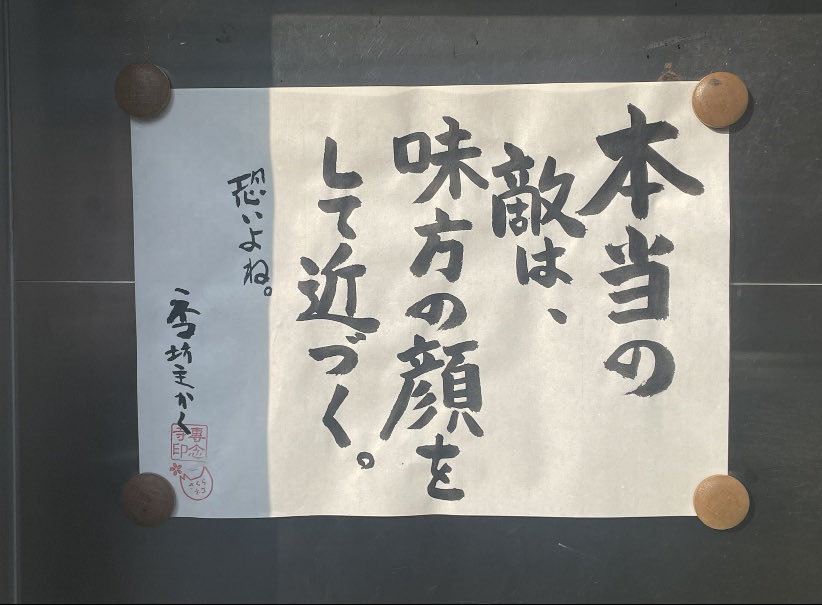 本当の
敵は、
味方の顔を
して近づく。
恐いよね。
坊主かく
専念
寺印
さくら
ネコ